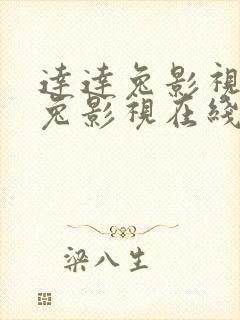 逹逹兔影視
兔影視在綫
梁八生